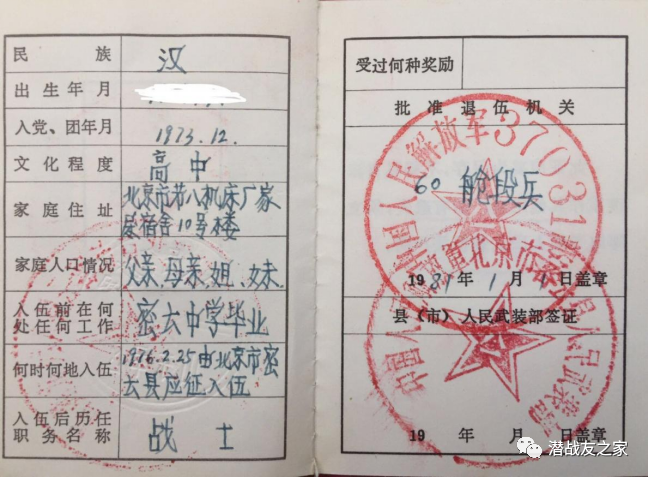 民族 汉
出生年月
入党、团年月 1973.12.
文化程度 高中
家庭住址 北京市第八机床厂家
属宿舍10号楼
家庭人口情况 父亲、母亲、姐、妹.
入伍前在何
处任何工作 密云中学毕业
何时何地入伍 1976.2.25由北京市密
云县应征入伍
入伍后历任
职务名称 战士
受过何种奖励
批准退伍机关
中国人民解放军37031
60 舱段兵
19 年1月 日盖章
县（市）人民武装部签证
19 年 月 日盖章
潜战友之家